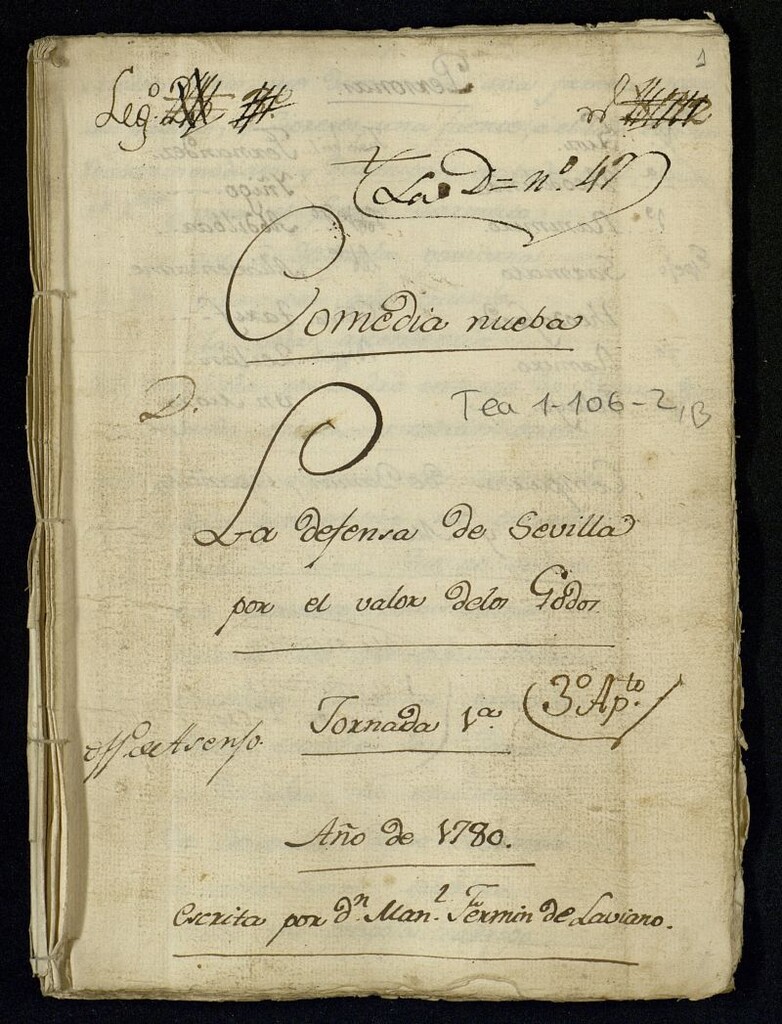 1
Leg.º
La D= nº 47
Comedia nueba
D.
Tea 1-106-2, B
La defensa de Sevilla
por el valor delos Godos
Jornada 1ª.
3º Ap.to
Año de 1780.
escrita por d.n Man.l Fermin de Laviano.